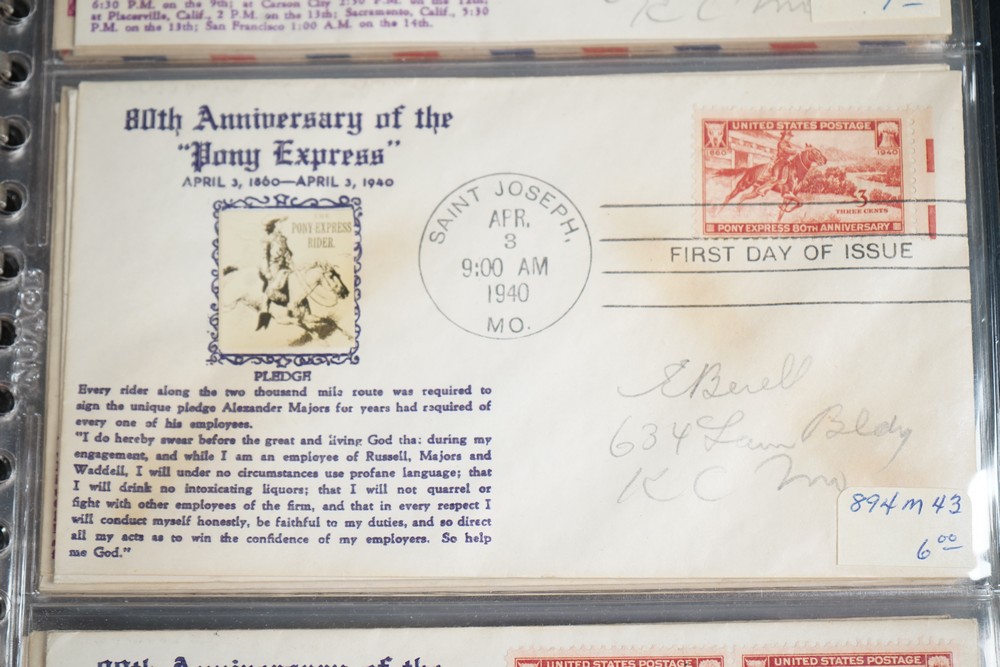 6:30 P.M. on the 9th; at Carson City 2:30 P.M. on the 12th;
at Placerville, Calif., 2 P.M. on the 13th; Sacramento, Calif., 5:30
P.M. on the 13th; San Francisco 1:00 A.M. on the 14th.
K C Mo
80th Anniversary of the
"Pony Express"
APRIL 3, 1860—APRIL 3, 1940
THE
PONY EXPRESS
RIDER.
PLEDGE
Every rider along the two thousand mile route was required to
sign the unique pledge Alexander Majors for years had required of
every one of his employees.
"I do hereby swear before the great and living God that during my
engagement, and while I am an employee of Russell, Majors and
Waddell, I will under no circumstances use profane language; that
I will drink no intoxicating liquors; that I will not quarrel or
fight with other employees of the firm, and that in every respect I
will conduct myself honestly, be faithful to my duties, and so direct
all my acts as to win the confidence of my employers. So help
me God."
SAINT JOSEPH,
APR.
3
9:00 AM
1940
MO.
UNITED STATES POSTAGE
1860 1940
3
THREE CENTS
PONY EXPRESS 80TH ANNIVERSARY
FIRST DAY OF ISSUE
E Berell
634 Bldg
K C Mo
894 M 43
6 00
80th Anniversary of the
UNITED STATES POSTAGE UNITED STATES POSTAGE